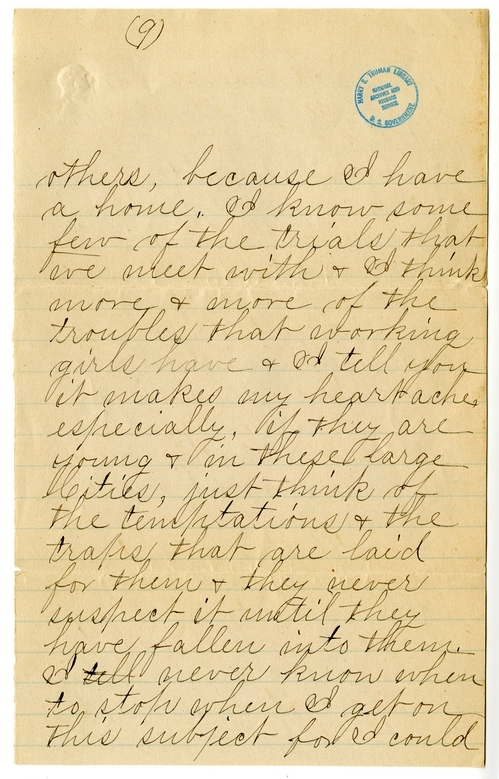 (9)
HARRY S. TRUMAN LIBRARY
NATIONAL
ARCHIVES AND
RECORDS
SERVICE
U. S. GOVERNMENT
others, because I have
a home. I know some
few of the trials that
we meet with & I think
more & more of the
troubles that working
girls have & I tell you
it makes my heart ache,
especially, if they are
young & in these large
Cities, just think of
the temptations & the
traps that are laid
for them & they never
suspect it until they
have fallen into them.
I tell never know when
to stop when I get on
this subject for I could